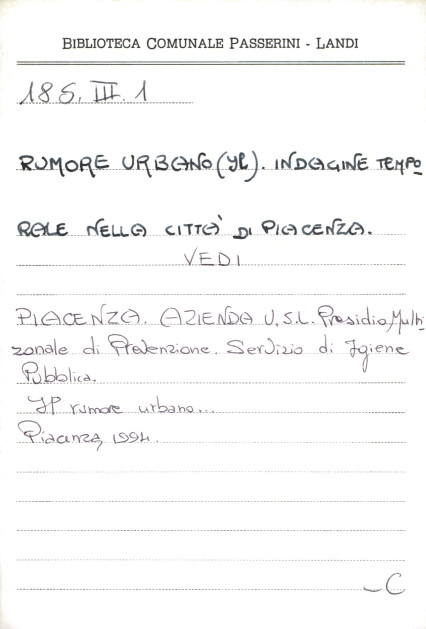 BIBLIOTECA COMUNALE PASSERINI - LANDI
185. III. 1
RUMORE URBANO (IL). INDAGINE TEMPO
RALE NELLA CITTÀ DI PIACENZA.
VEDI
PIACENZA. AZIENDA U.S.L. Presidio Multi-
zonale di Prevenzione. Servizio di Igiene
Pubblica.
Il rumore urbano...
Piacenza, 1994.
-C